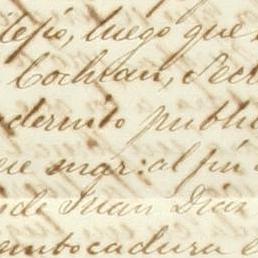 tejio, luego que
Cochran, Secr
udernito publi
ere mar: al fin
de Juan Dias
embocadura e